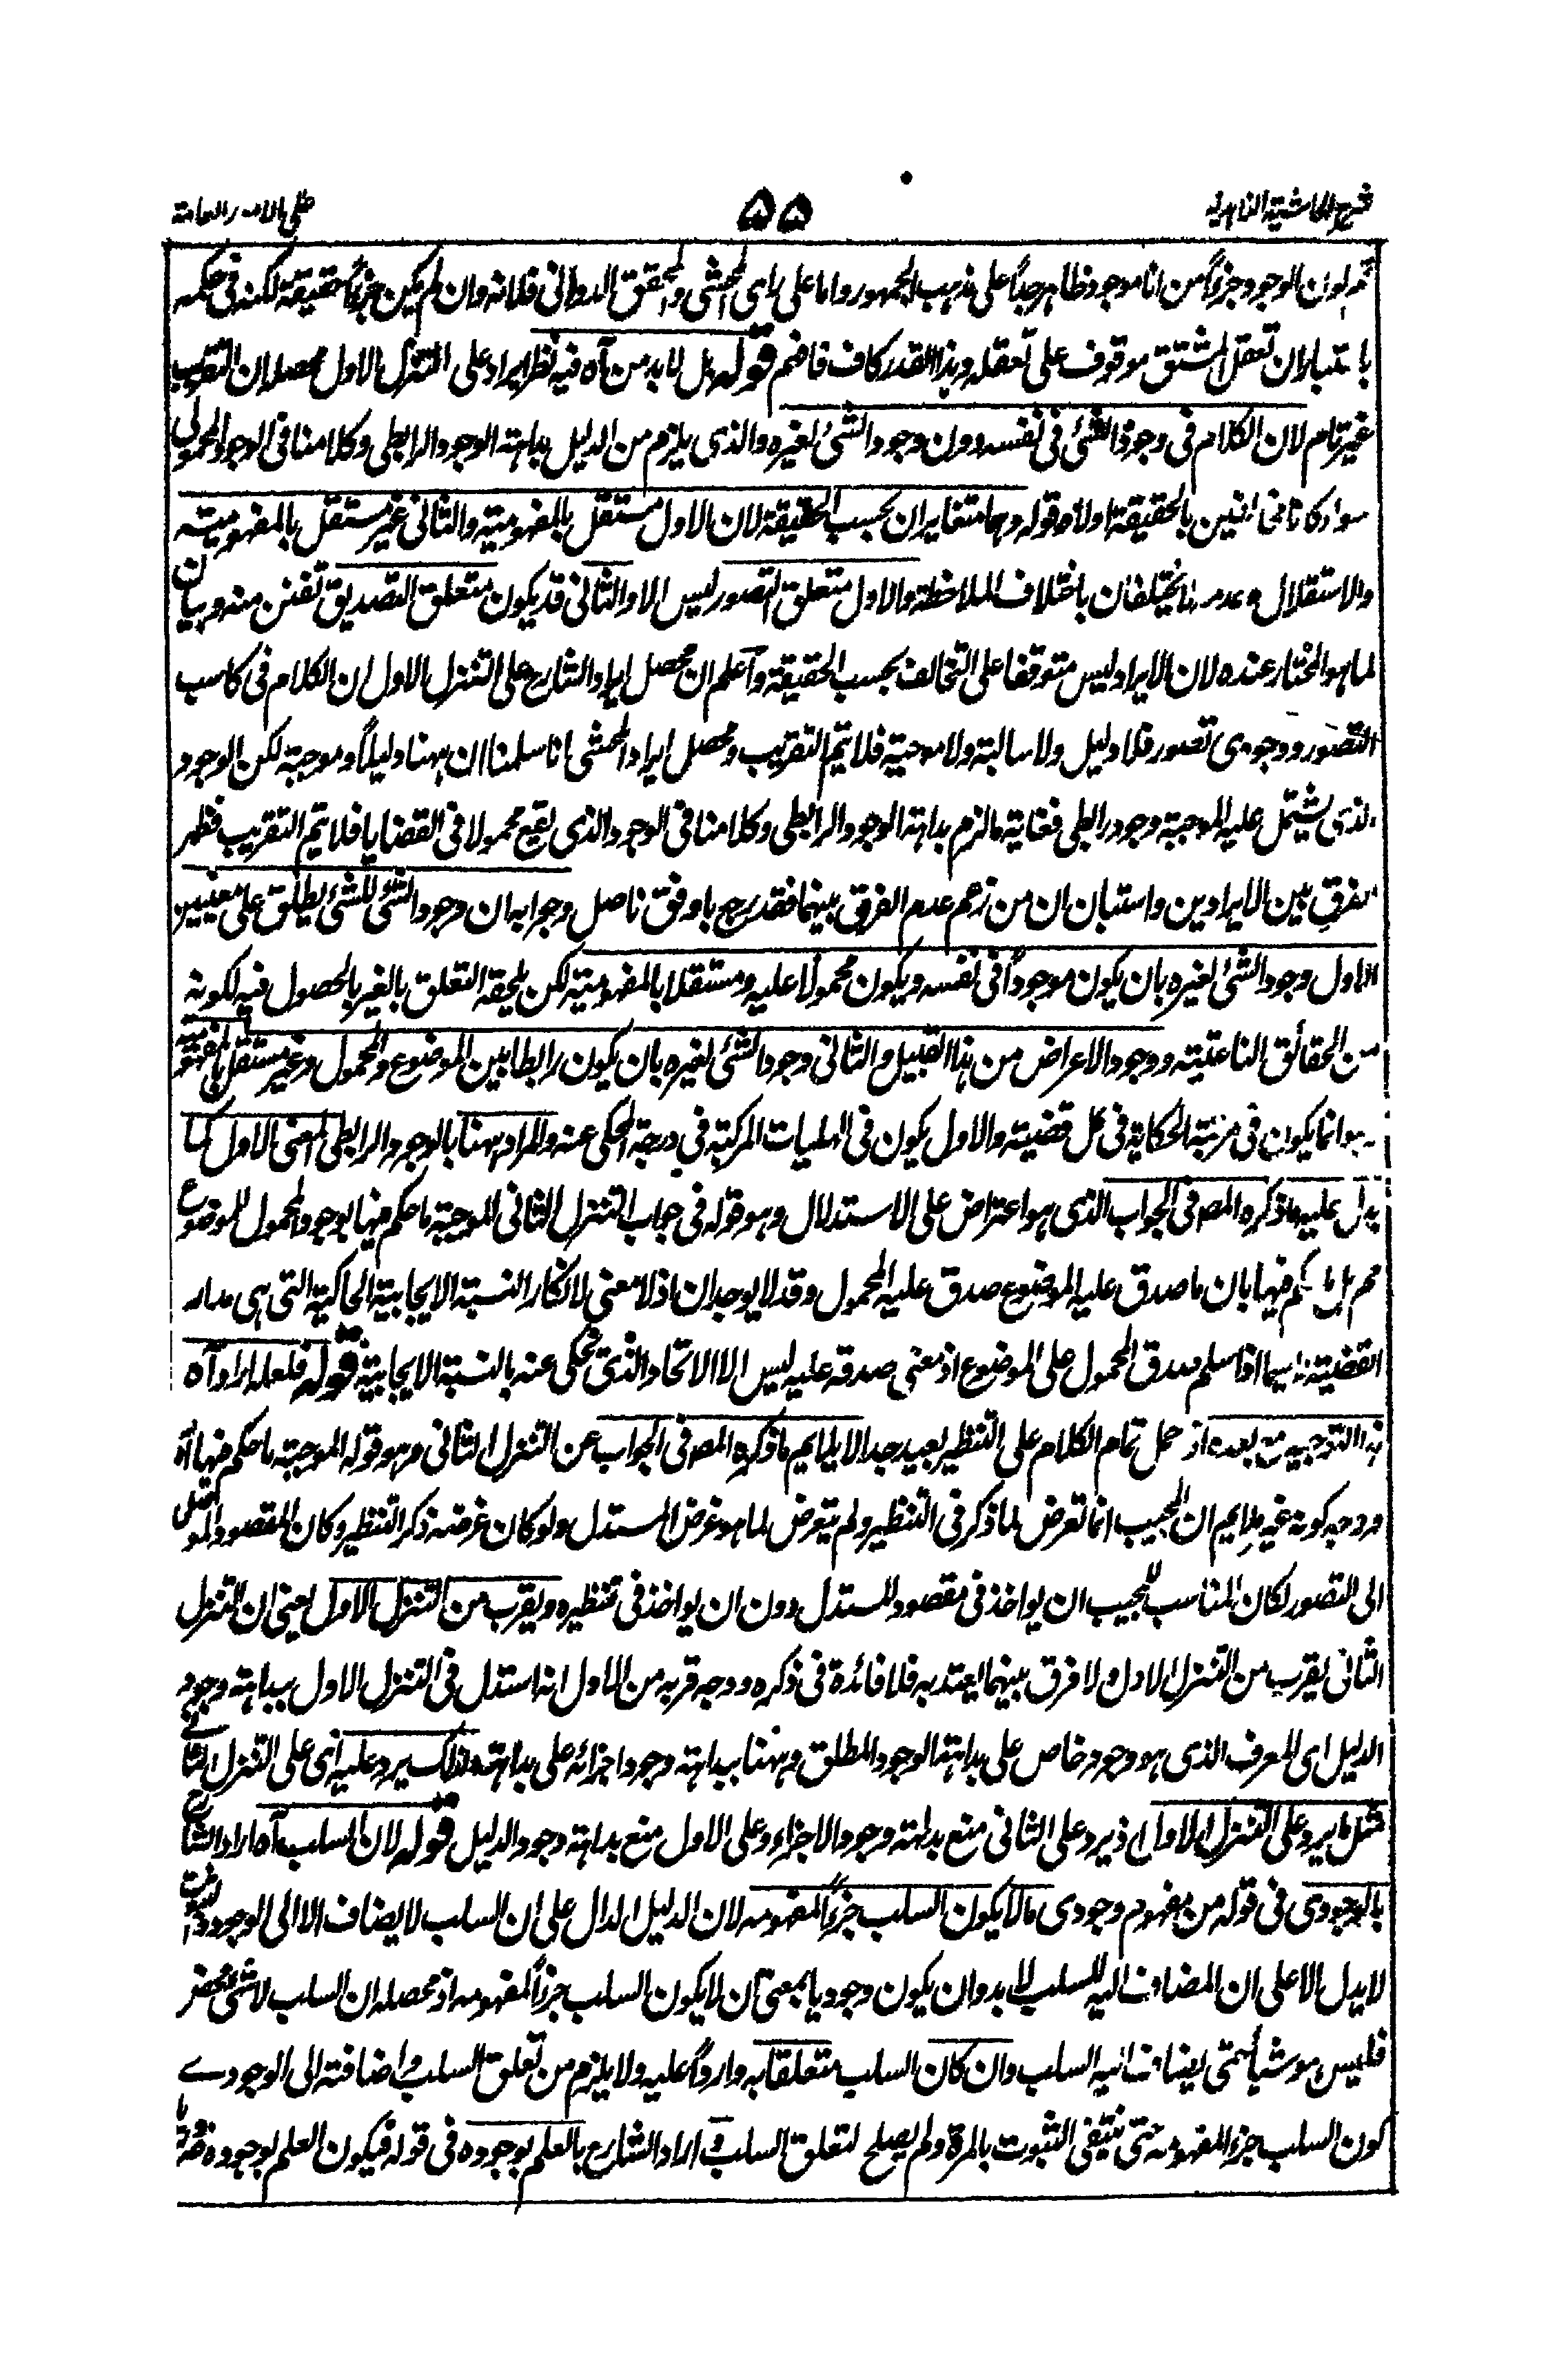 شرح الحاشية الزاهدية ۵۵ على الامور العامة
ثم كون الوجود جزءاً من انا موجود ظاهر جداً على مذهب الجمهور واما على راى المحشى والمحقق الدوانى فلانه وان لم يكن جزءاً حقيقة لكنه فى حكمه
باعتبار ان تعقل المشتق موقوف على تعقله وهذا القدر كاف فافهم قوله بل لا بد من آه فيه نظر ايراد على التنزل الاول محصله ان التقريب
غير تام لان الكلام فى وجود الشئ فى نفسه دون وجود الشئ لغيره والذى يلزم من الدليل بداهة الوجود الرابطى وكلامنا فى الوجود المحمولى
سواء كانا متحدين بالحقيقة اولا قوله وهما متغايران بحسب الحقيقة لان الاول مستقل بالمفهومية والثانى غير مستقل بالمفهومية
والاستقلال وعدمه لا يختلفان باختلاف الملاحظة والاول متعلق التصور ليس الا والثانى قد يكون متعلق التصديق تفنن منه وبيان
لما هو المختار عنده لان الايراد ليس متوقفا على التخالف بحسب الحقيقة وآعلم ان محصل ايراد الشارح على التنزل الاول ان الكلام فى كاسب
التصور ووجودى تصور فلا دليل ولا سالبة ولا موجبة فلا يتم التقريب ومحصل ايراد المحشى انا سلمنا ان ههنا دليلاً وموجبة لكن الوجود
الذى يشتمل عليه الموجبة وجود رابطى فغاية ما لزم بداهة الوجود الرابطى وكلامنا فى الوجود الذى يقع محمولا فى القضايا فلا يتم التقريب فظهر
الفرق بين الايرادين واستبان ان من زعم عدم الفرق بينهما فقد رجع باوفق ناصل وجوابه ان وجود الشئ للشئ يطلق على معنيين
الاول وجود الشئ لغيره بان يكون موجوداً فى نفسه ويكون محمولا عليه ومستقلا بالمفهومية لكن يلحقه التعلق بالغير بالحصول فيه لكونه
من الحقائق الناعتية ووجود الاعراض من هذا القبيل والثانى وجود الشئ لغيره بان يكون رابطا بين الموضوع والمحمول وغير مستقل بالمفهومية
وهو انما يكون فى مرتبة الحكاية فى كل قضية والاول يكون فى الهليات المركبة فى درجة المحكى عنه والمراد ههنا بالوجود الرابطى المعنى الاول كما
يدل عليه ما ذكره المصـ فى الجواب الذى هو اعتراض على الاستدلال وهو قوله فى جواب التنزل الثانى الموجبة ما حكم فيها بوجود المحمول للموضوع
مم بل ما حكم فيها بان ما صدق عليه الموضوع صدق عليه المحمول وقد لا يوجدان اذ لا معنى لانكار النسبة الايجابية الحاكية التى هى مدار
القضية لا سيما اذا سلم صدق المحمول على الموضوع اذ معنى صدقه عليه ليس الا الاتحاد الذى يحكى عنه بالنسبة الايجابية قوله فلعله اراد آه
هذا التوجيه مع بعده اذ حمل تمام الكلام على التنظير بعيد جدا لا يلايم ما ذكره المصـ فى الجواب عن التنزل الثانى وهو قوله الموجبة ما حكم فيها آه
ووجه كونه غير ملايم ان المجيب انما تعرض لما ذكر فى التنظير ولم يتعرض لما هو غرض المستدل ولو كان غرضه ذكر التنظير وكان المقصود الموصل
الى التصور لكان المناسب للمجيب ان يواخذ فى مقصود المستدل دون ان يواخذ فى تنظيره ويقرب من التنزل الاول يعنى ان التنزل
الثانى يقرب من التنزل الاول ولا فرق بينهما يعتد به فلا فائدة فى ذكره ووجه قربه من الاول انه استدل فى التنزل الاول ببداهة وجود
الدليل اى المعرف الذى هو وجود خاص على بداهة الوجود المطلق وههنا ببداهة وجود اجزائه على بداهته ولذلك يرد عليه اى على التنزل الثانى
مثل ما يرد على التنزل الاول اذ يرد على الثانى منع بداهة وجود الاجزاء وعلى الاول منع بداهة وجود الدليل قوله لان السلب آه اراد الشارح
بالوجودى فى قوله من مفهوم وجودى ما لا يكون السلب جزءاً لمفهومه لان الدليل الدال على ان السلب لا يضاف الا الى الوجود
لا يدل الا على ان المضاف اليه للسلب لا بد وان يكون وجوديا بمعنى ان لا يكون السلب جزءاً لمفهومه اذ محصله ان السلب لا شئ محض
فليس هو شيأ حتى يضاف اليه السلب وان كان السلب متعلقا به وارداً عليه ولا يلزم من تعلق السلب واضافته الى الوجودى
كون السلب جزء المفهومه حتى ينتفى الثبوت بالمرة ولم يصلح لتعلق السلب و اراد الشارح بالعلم بوجوده فى قوله فيكون العلم بوجوده ضروريا